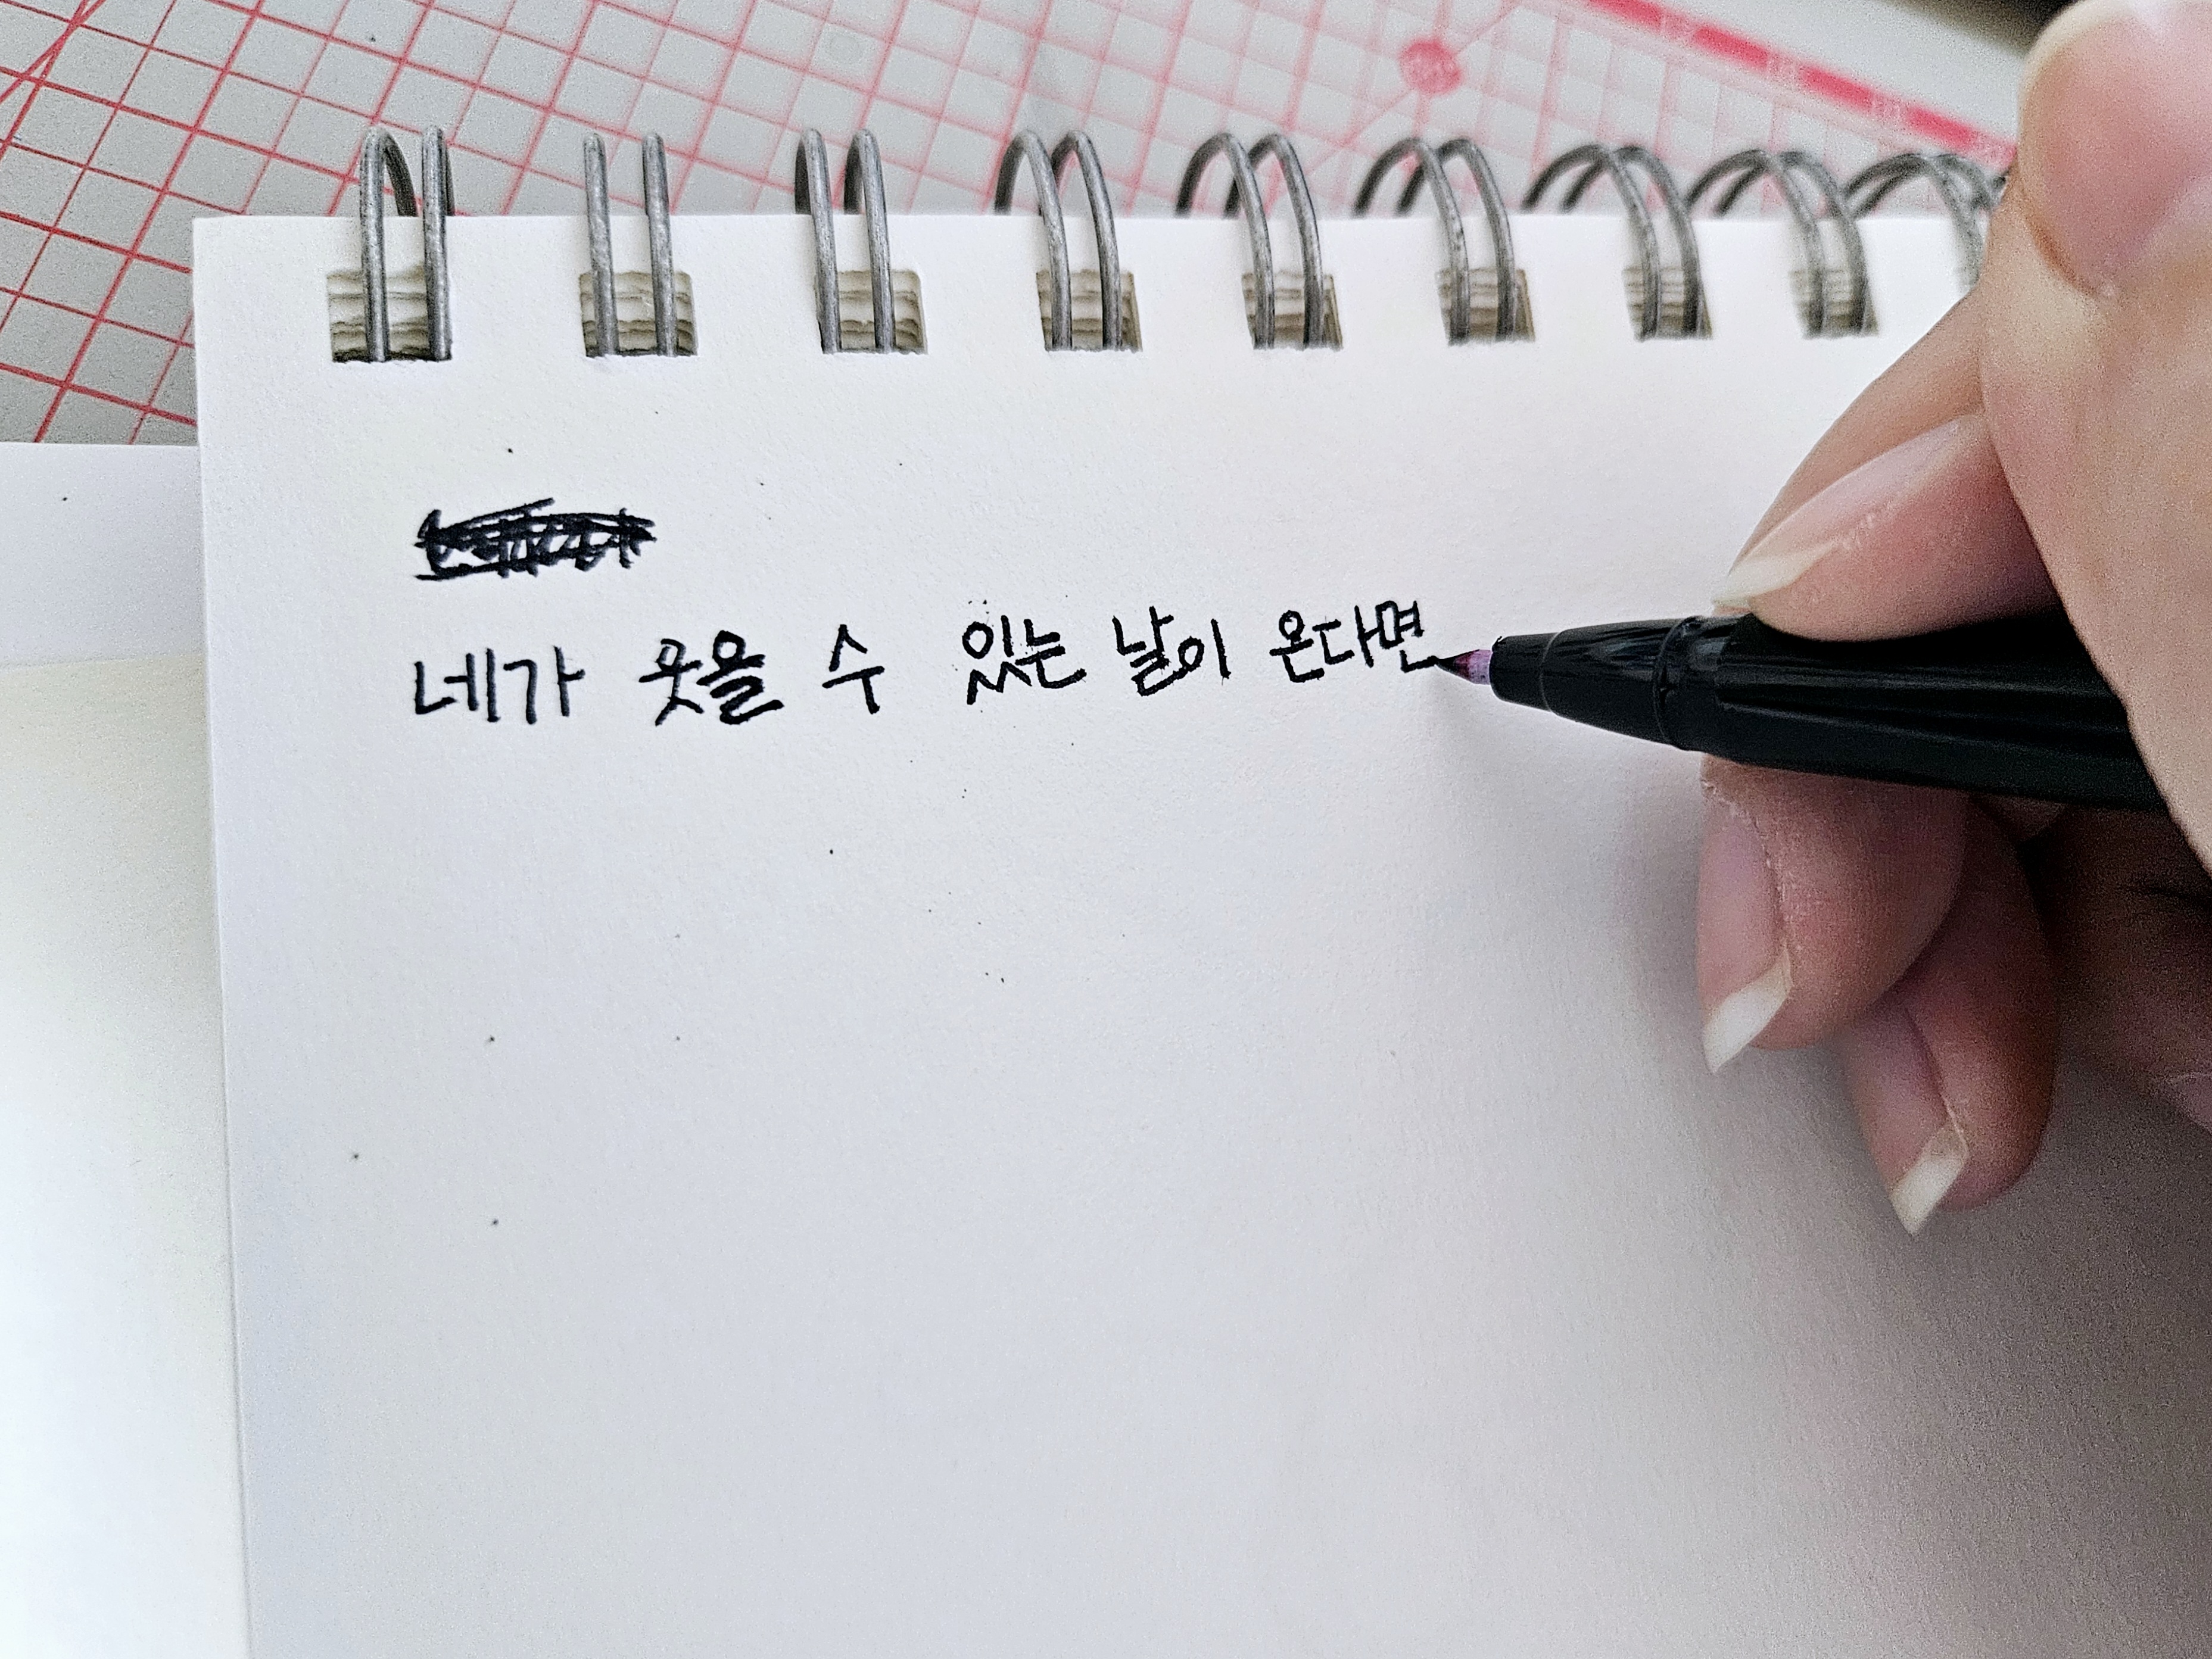 네가 웃을 수 있는 날이 온다면